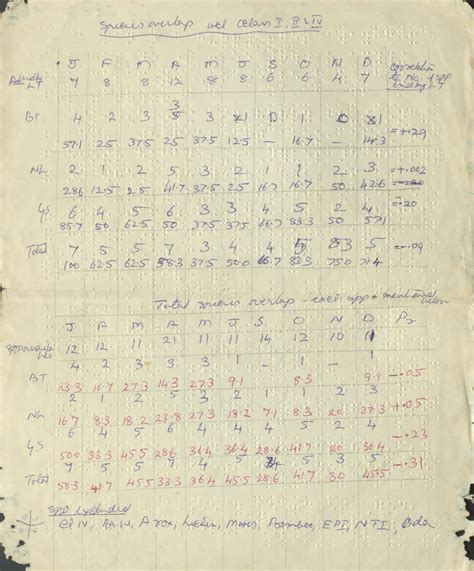 Species overlap excl Class I, II & IV
J F M A M J S O N D Correlation
7 8 8 12 8 8 6 6 4 7 to No. of spp
BT 4 2 3 3 1 D 1 0 1
57.1 25 37.5 25 37.5 12.5 — 16.7 — 14.3 = +.29
NL 2 1 2 5 3 2 1 1 2 3 = +.002
28.6 12.5 25 41.7 37.5 25 16.7 16.7 50 42.6
GS 6 4 5 6 3 3 4 5 2 4 = .20
85.7 50 62.5 50 37.5 37.5 66.7 83.3 50 57.1
Total 7 5 5 7 3 4 4 5 3 5 = -.09
100 62.5 62.5 58.3 37.5 50.0 66.7 83.3 75.0 71.4
Total species overlap - excl spp mentioned below
J F M A M J S O N D Pr
12 12 11 21 11 11 14 12 10 11
4 2 3 3 3 1 - 1 - 1
BT 33.3 16.7 27.3 14.3 27.3 9.1 8.3 9.1 -.05
2 1 2 5 3 2 1 1 2 3
NL 16.7 8.3 18.2 23.8 27.3 18.2 7.1 8.3 20 27.3 +.05
6 4 5 6 4 4 4 5 2 4
GS 50.0 33.3 45.5 28.6 36.4 36.4 28.6 41.7 20 36.4 -.23
7 5 5 7 4 5 4 5 3 5
Total 58.3 41.7 45.5 33.3 36.4 45.5 28.6 41.7 30 45.5 -.31
Spp Excluded
Cl IV, An.W, A rox, Lichen, Moss, Bamboo, EPI, NTI, Biden